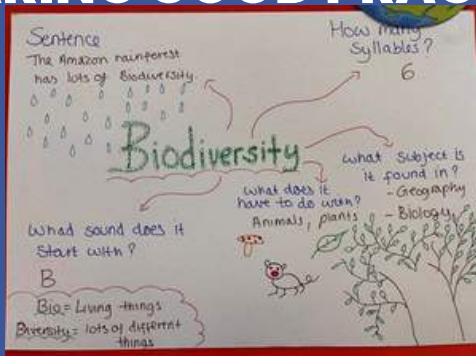 Sentence
The Amazon rainforest
has lots of Biodiversity.
How many
Syllables?
6
Biodiversity
what subject is
it found in?
- Geography
- Biology
what does it
have to do with?
Animals, plants
what sound does it
Start with?
B
Bio = Living things
Diversity = lots of different
things